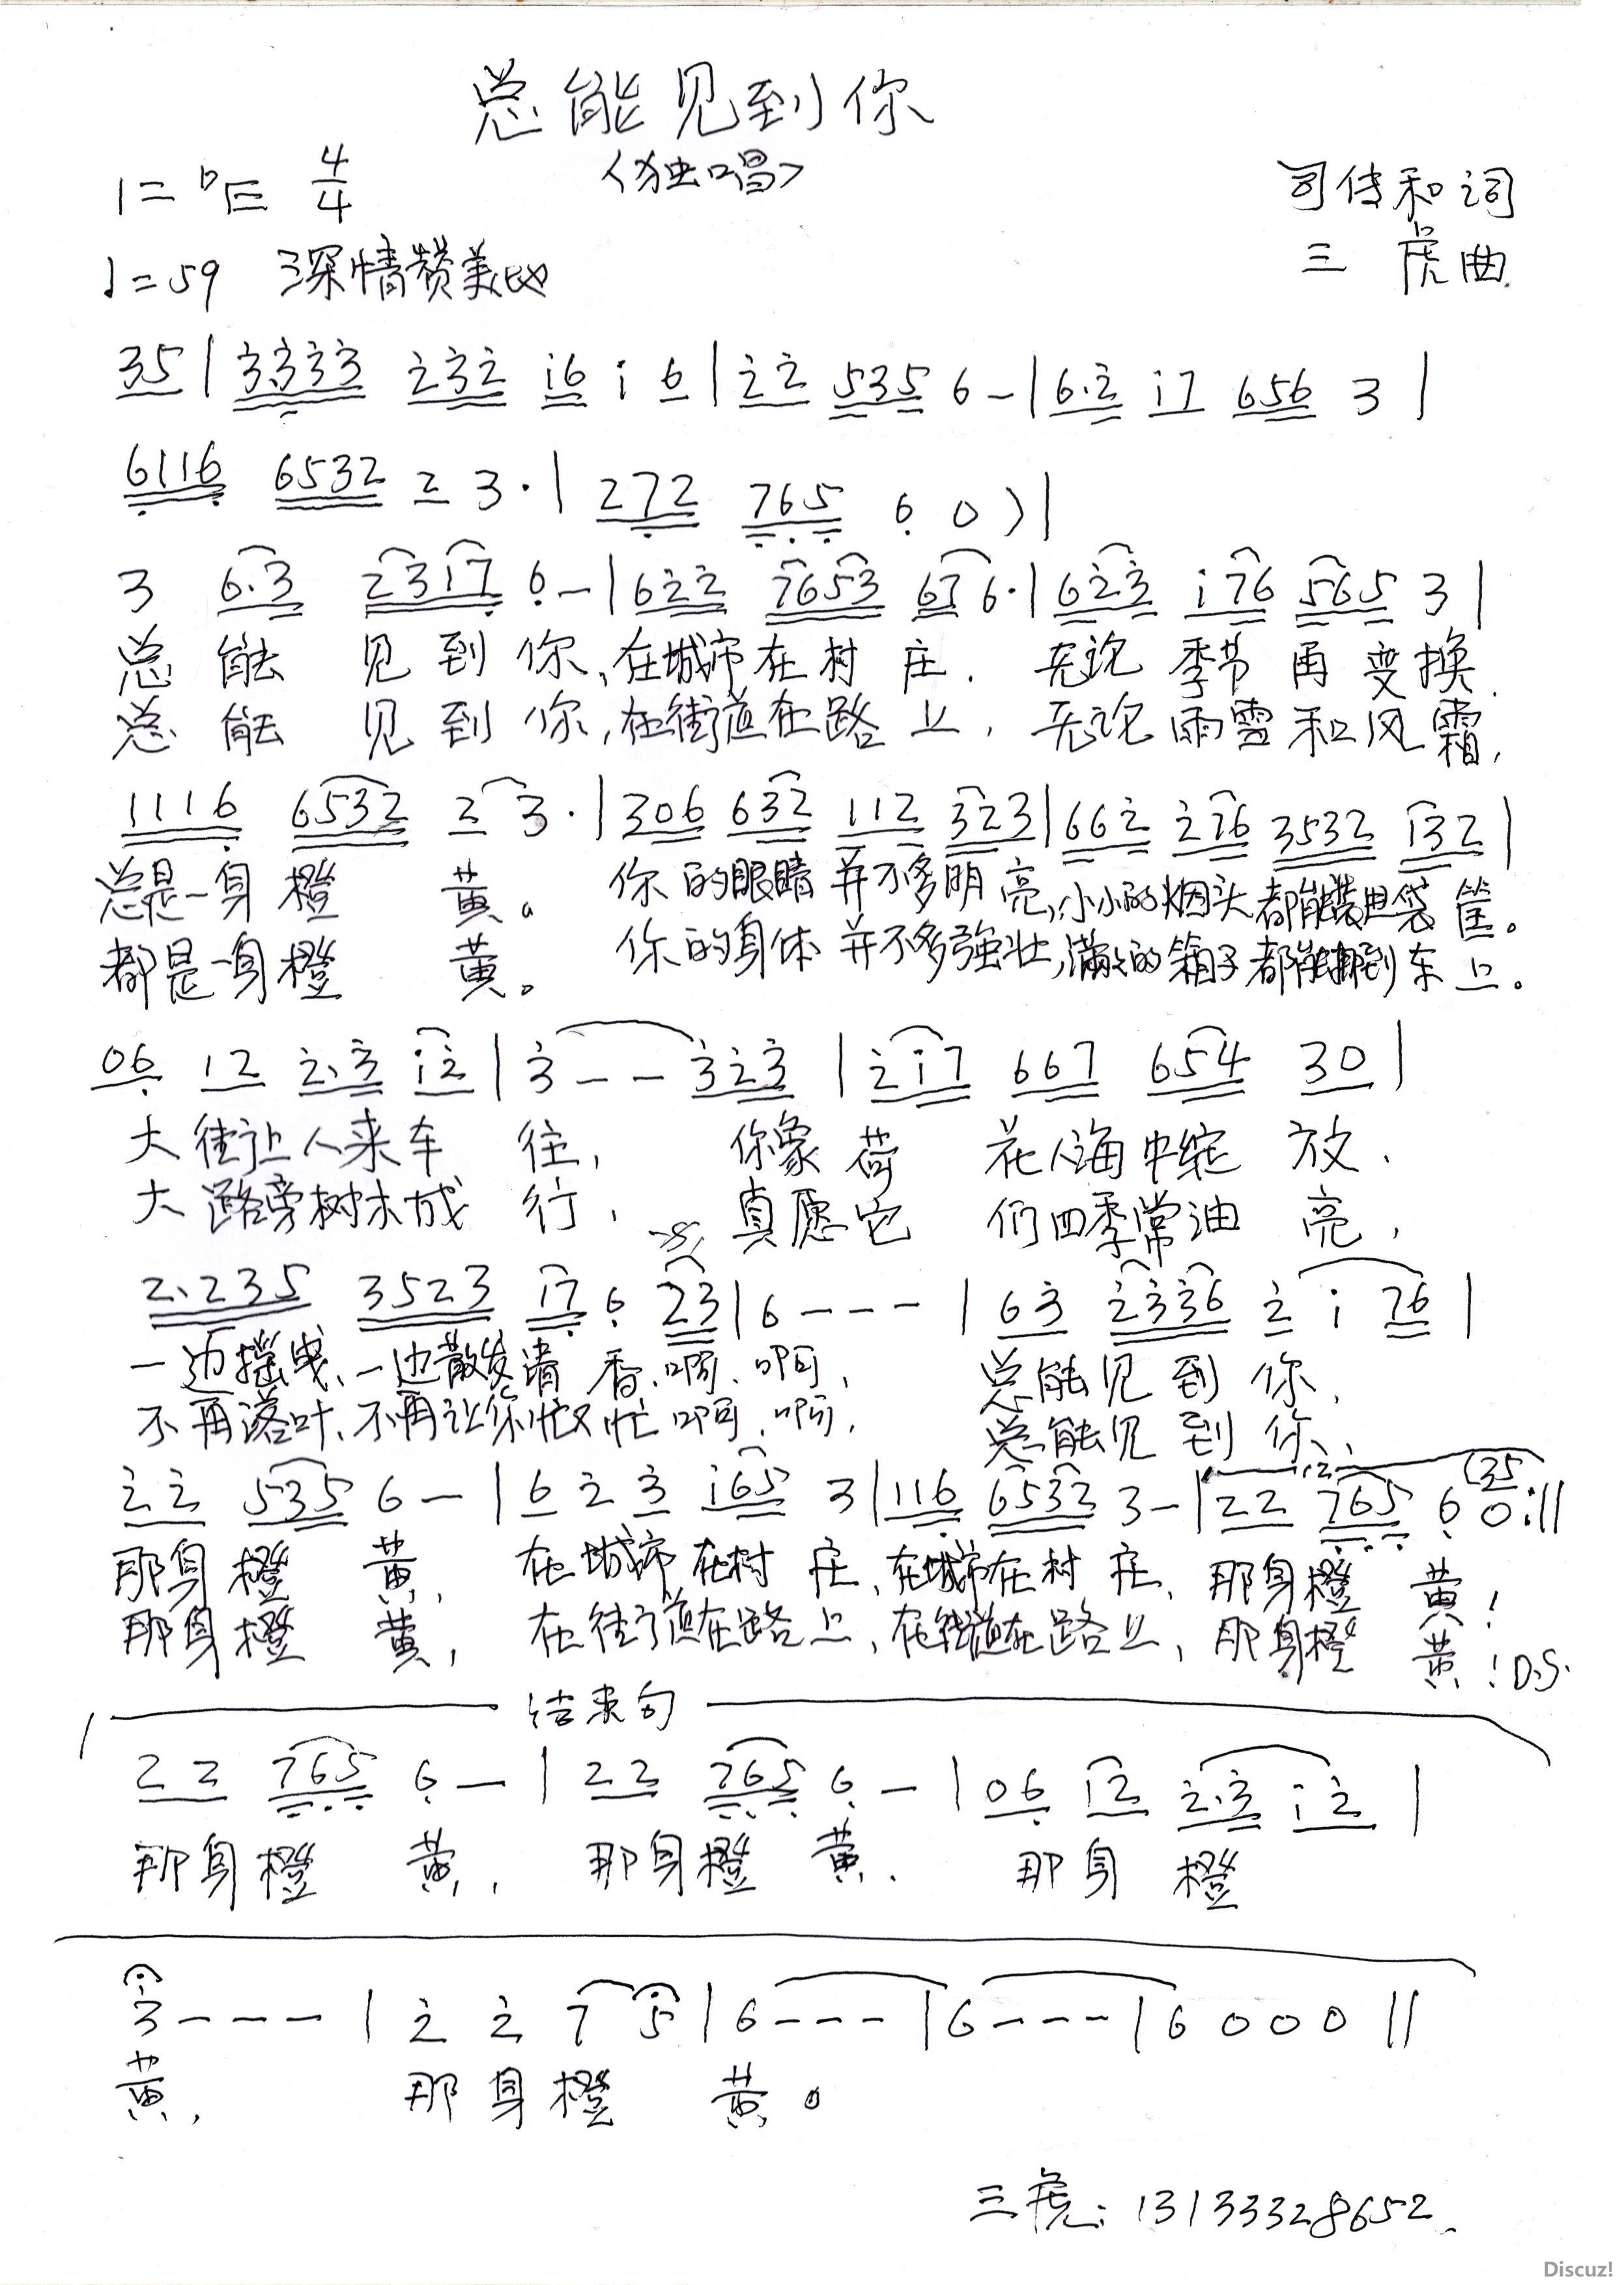 总能见到你
1=ᵇE 4/4 〈独唱〉 司传和词
♩=59 深情赞美地 三虎曲
35 | 3.333 232 i6 i 6 | 22 535 6 - | 6.2 i7 656 3 |
6116 6532 2 3· | 272 765 6 0 ) |
3 6.3 23i7 6 - | 622 7653 67 6· | 623 i76 565 3 |
总能见到你,在城市在村庄.无论季节再变换.
总能见到你,在街道在路上,无论雨雪和风霜,
1116 6532 2 3· | 306 632 112 323 | 662 2i6 3532 132 |
总是一身橙黄。你的眼睛并不多明亮,小小的烟头都能装进袋筐。
都是一身橙黄。你的身体并不多强壮,满满的箱子都能挪到车上。
06 12 2.3 i2 | 3 - - 323 | 2i7 667 654 30 |
大街让人来车往,你象荷花人海中绽放.
大路旁树木成行,真愿它们四季常油亮,
2.235 3523 i7 6 23 | 6 - - - | 63 2336 2 i 76 |
一边摇曳、一边散发清香.啊.啊,总能见到你,
不再落叶、不再让你忙又忙啊.啊,总能见到你、
22 535 6 - | 6 2 3 i65 3 | 116 6532 3 - | 1.2 22 765 6 (35 0 :||
那身橙黄,在城市在村庄、在城市在村庄、那身橙黄!
那身橙黄,在街道在路上,在街道在路上,那身橙黄!D.S.
结束句
22 765 6 - | 22 765 6 - | 06 i2 2.3 i2 |
那身橙黄,那身橙黄.那身橙
3 - - - | 2 2 7 5 | 6 - - - | 6 - - - | 6 0 0 0 ||
黄,那身橙黄。
三虎:13133328652
Discuz!